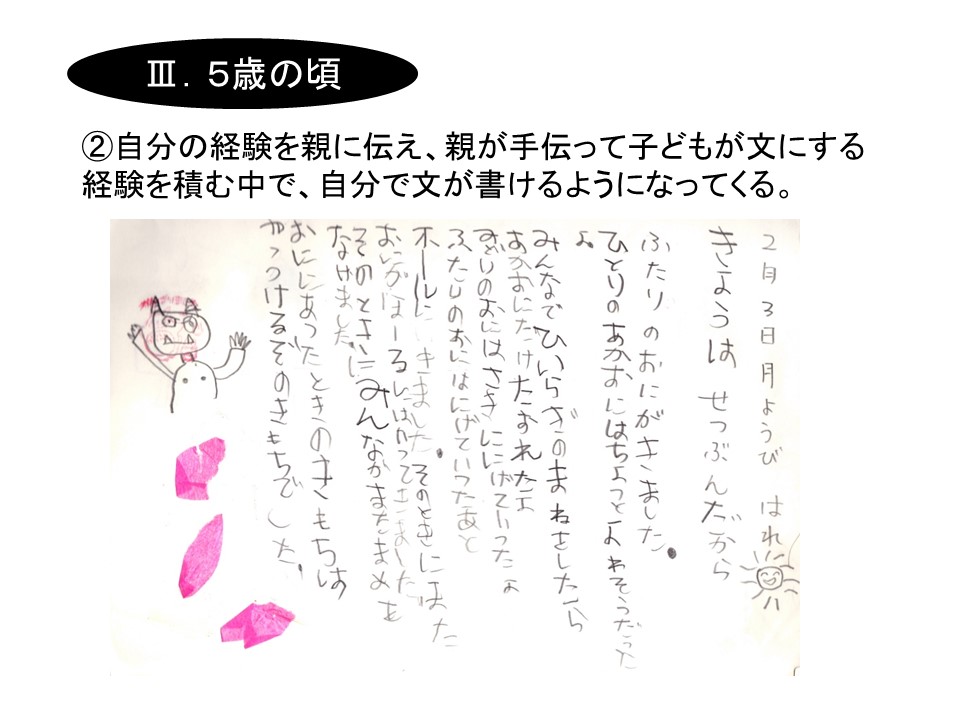 Ⅲ．５歳の頃
②自分の経験を親に伝え、親が手伝って子どもが文にする
経験を積む中で、自分で文が書けるようになってくる。
2月3日月ようび はれ
きょうは せつぶんだから
ふたりのおにがきました。
ひとりのあかおにはちょっとよわそうだった
よ。
みんなでひいらぎのまねをしたら
あかおにだけたおれたよ
みどりのおにはさきににげていったよ
ふたりのおにはにげていったあと
ホールにいきました。そのときにはた
おにがほーるにはいってきました。
そのときに みんながまためまめを
なげました。
おににあったときのきもちは
やっつけるぞのきもちでした。